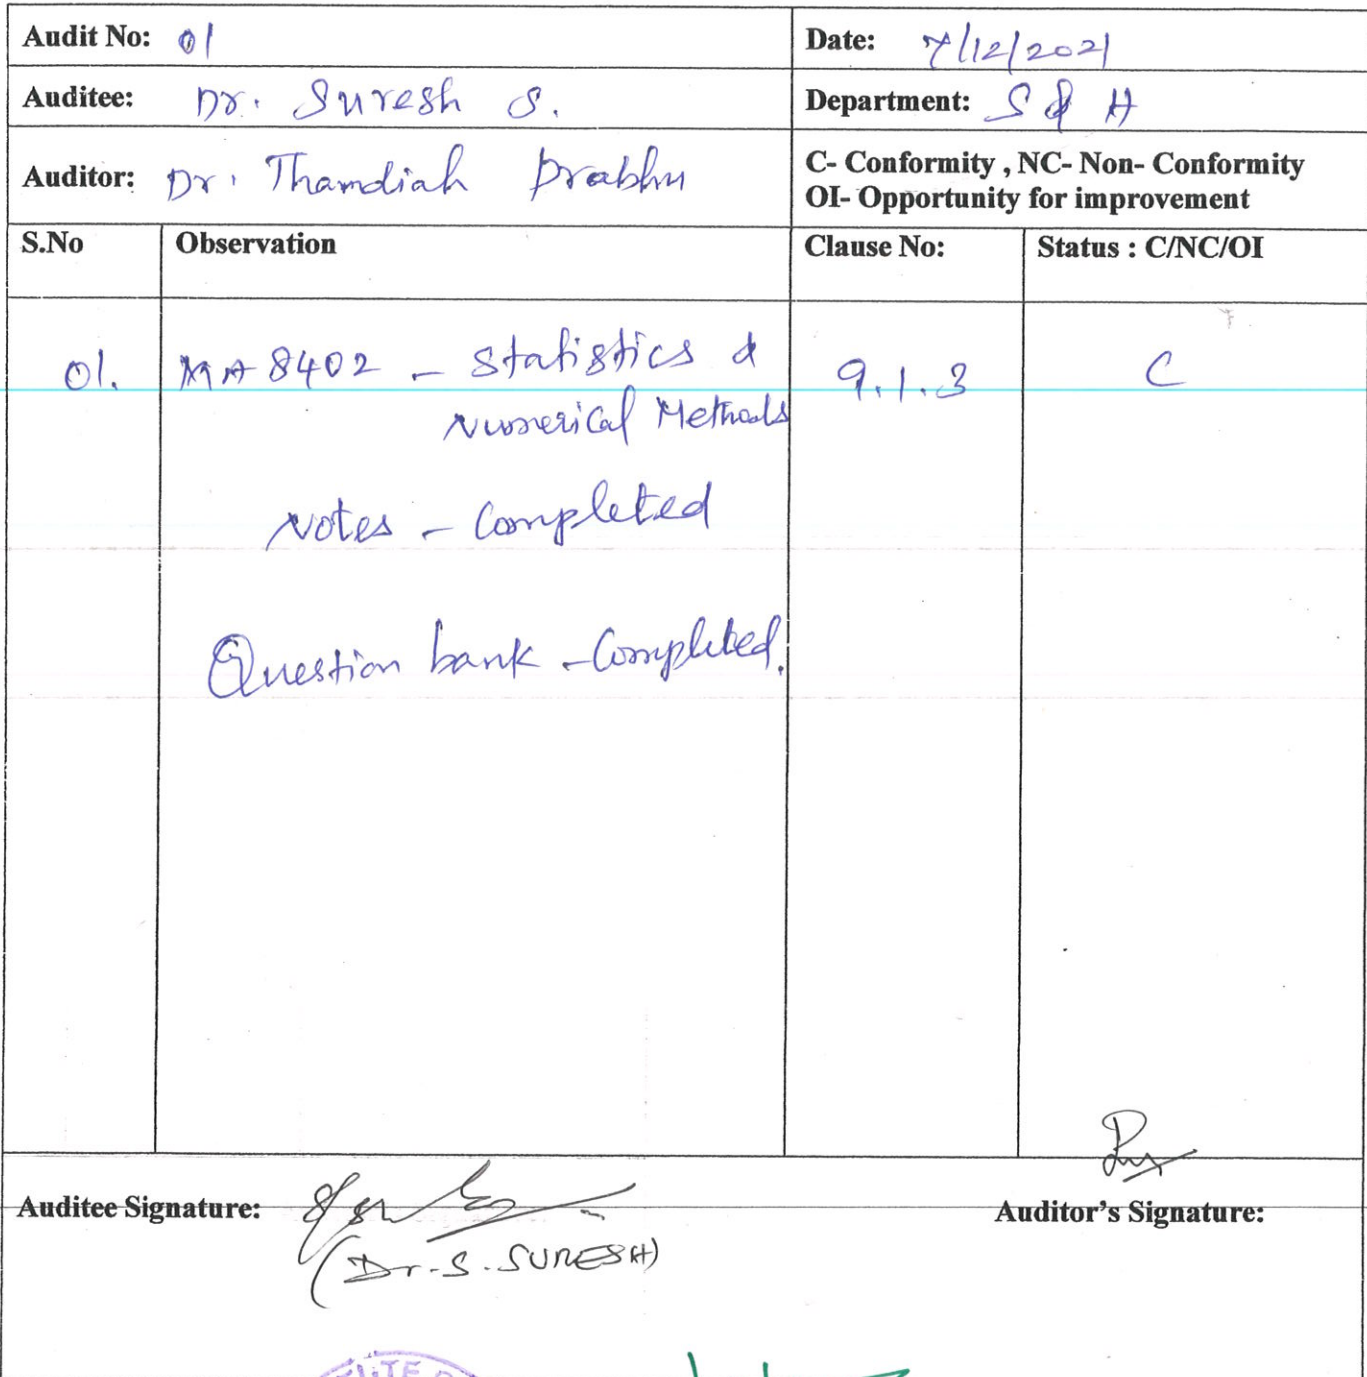 Audit No: 01 Date: 7/12/2021
Auditee: Dr. Suresh S. Department: S & H
Auditor: Dr. Thamdiah Prabhu C- Conformity , NC- Non- Conformity
OI- Opportunity for improvement
S.No Observation Clause No: Status : C/NC/OI
01. MA8402 - Statistics & 9.1.3 C
Numerical Methods
Notes - Completed
Question bank - Completed.
Auditee Signature: Auditor's Signature:
(Dr. S. SURESH)